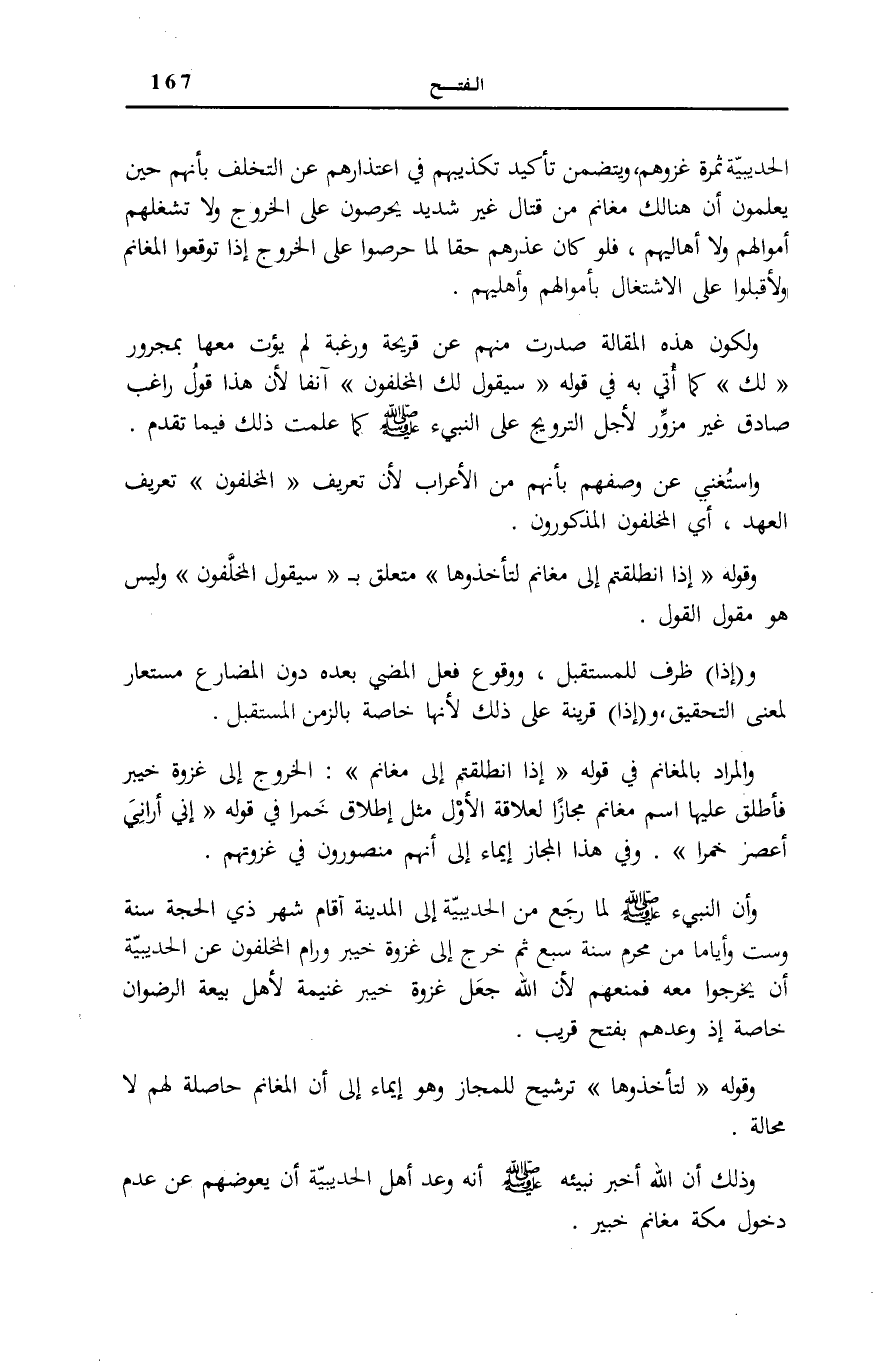 الفتـــح 167
الحديبيّة ثمرة غزوهم،ويتضمن تأكيد تكذيبهم في اعتذارهم عن التخلف بأنهم حين
يعلمون أن هنالك مغانم من قتال غير شديد يحرصون على الخروج ولا تشغلهم
أموالهم ولا أهاليهم ، فلو كان عذرهم حقا لما حرصوا على الخروج إذا توقعوا المغانم
ولأقبلوا على الاشتغال بأموالهم وأهليهم .
ولكون هذه المقالة صدرت منهم عن قريحة ورغبة لم يؤت معها بمجرور
« لك » كما أُتي به في قوله « سيقول لك المخلفون » آنفا لأن هذا قولُ راغب
صادق غير مزوِّر لأجل الترويج على النبيء ﷺ كما علمت ذلك فيما تقدم .
واستُغني عن وصفهم بأنهم من الأعراب لأن تعريف « المخلفون » تعريف
العهد ، أي المخلفون المذكورون .
وقوله « إذا انطلقتم إلى مغانم لتأخذوها » متعلق بـ « سيقول المخلَّفون » وليس
هو مقول القول .
و(إذا) ظرف للمستقبل ، ووقوع فعل المضي بعده دون المضارع مستعار
لمعنى التحقيق،و(إذا) قرينة على ذلك لأنها خاصة بالزمن المستقبل .
والمراد بالمغانم في قوله « إذا انطلقتم إلى مغانم » : الخروج إلى غزوة خيبر
فأطلق عليها اسم مغانم مجازًا لعلاقة الأوْل مثل إطلاق خَمرا في قوله « إني أرانِيَ
أعصر خمرا » . وفي هذا المجاز إيماء إلى أنهم منصورون في غزوتهم .
وأن النبيء ﷺ لما رجَع من الحديبيّة إلى المدينة أقام شهر ذي الحجة سنة
وست وأياما من محرم سنة سبع ثم خرج إلى غزوة خيبر ورام المخلفون عن الحديبيّة
أن يخرجوا معه فمنعهم لأن الله جعَل غزوة خيبر غنيمة لأهل بيعة الرضوان
خاصة إذ وعدهم بفتح قريب .
وقوله « لتأخذوها » ترشيح للمجاز وهو إيماء إلى أن المغانم حاصلة لهم لا
محالة .
وذلك أن الله أخبر نبيئه ﷺ أنه وعد أهل الحديبيّة أن يعوضهم عن عدم
دخول مكة مغانم خبير .